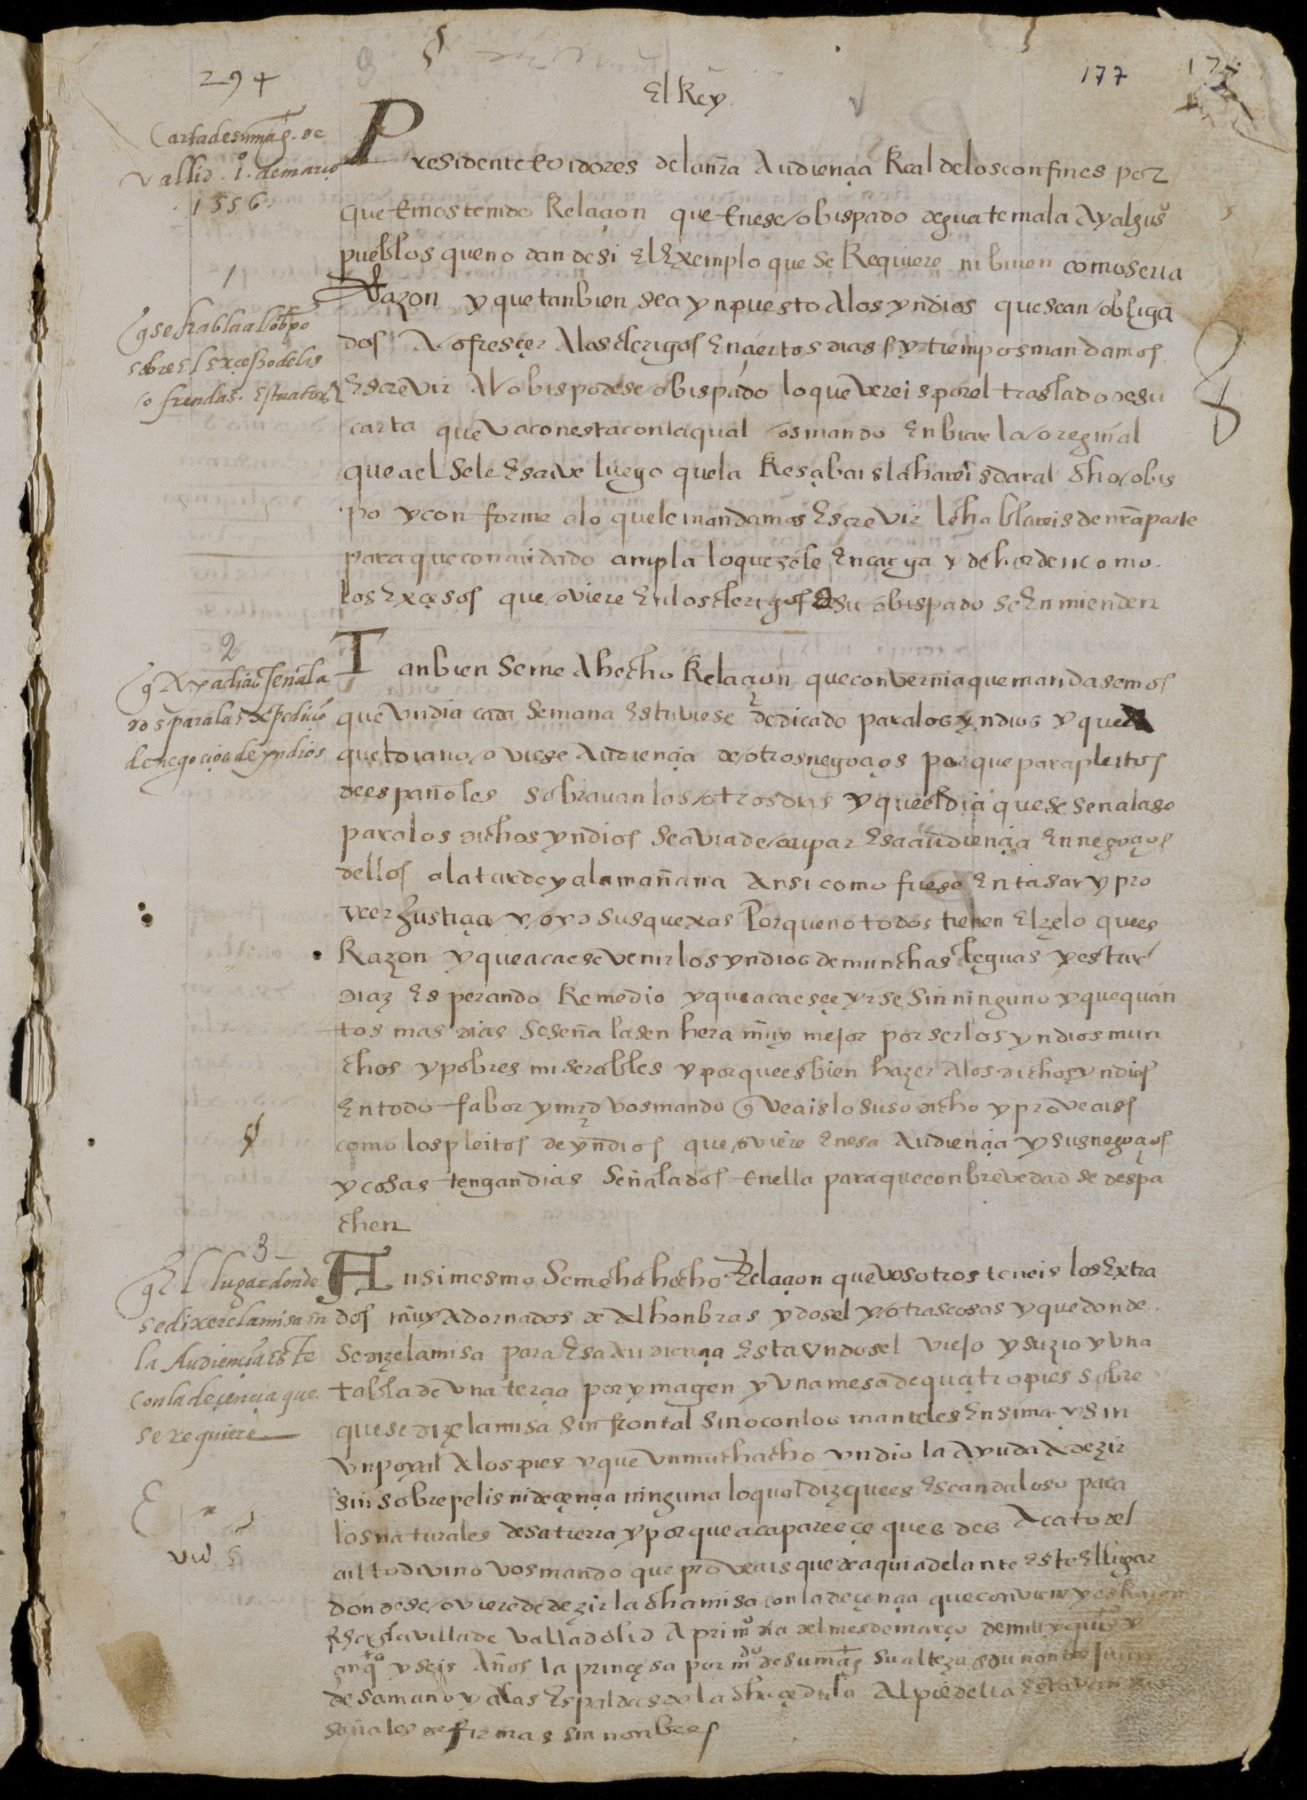 294
177
El Rey
Carta de su mag. de
Vallid. 1º. de março
.1556.
Presidente e oidores de la nra Audiençia Real de los confines por
que emos tenido Relaçion que en ese obispado de guatemala Ay algus
pueblos que no dan de si El Exemplo que se Requiere ni biuen como seria
Razon y que tanbien sea ynpuesto A los yndios que sean obliga
dos A ofresçer A los clerigos En çiertos dias y tiempos mandamos
Escrevir Al obispo de se obispado lo que vereis por el traslado de su
carta que va con esta con la qual os mando Enbiar la oreginal
que a el se le Escrive luego que la Resçibais la hareis dar al dho obis
po y conforme a lo que le mandamos Escrevir le hablareis de nra parte
para que con cuidado cumpla lo que se le Encarga y de horden como
los Exçesos que oviere En los clerigos de su obispado se Enmienden
1
q se habla al obpo
sobre El Exçesso de las
ofrendas
2
Tanbien se me A hecho Relaçion que convernia que mandasemos
que vn dia cada semana Estuviese dedicado para los yndios y que
quel dia no oviese Audiençia de otros negoçios porque para pleitos
de españoles sobravan los otros dias y que el dia que se señalase
para los dichos yndios se avia de ocupar Esa audiençia En negoçios
dellos a la tarde y a la mañana Ansi como fuese En tasar y pro
veer Justiçia y oyr sus quexas Porque no todos tienen El zelo que es
Razon y que acaesçe venir los yndios de munchas leguas y estar
dias Esperando Remedio y que acaesçe yrse sin ninguno y que quan
tos mas dias se señalasen hera muy mejor por ser los yndios mun
chos y pobres miserables y porque es bien hazer A los dichos yndios
En todo fabor y mrd vos mando q veais lo suso dicho y proveais
como los pleitos de yndios que oviere En esa Audiençia y sus negoçios
y cosas tengan dias señalados En ella para que con brevedad se despa
chen
de negoçios de yndios
3
Ansimesmo se me ha hecho Relaçion que vosotros teneis los Extra
dos muy Adornados de Alhonbras y dosel y otras cosas y que donde
se dize la misa para Esa Audiençia Esta vn dosel viejo y suzio y vna
tabla de vna terçia por ymagen y vna mesa de quatro pies sobre
que se dize la misa sin frontal sino con los manteles Ensima y sin
vn poyal A los pies y que vn muchacho yndio la Ayuda A dezir
sin sobrepelis ni deçençia ninguna lo qual diz que es Escandaloso para
los naturales desa tierra y porque aca pareçe que es des Acato del
culto divino vos mando que proveais que de aqui adelante Este El lugar
donde se oviere de dezir la dha misa con la deçençia que conviene y es Razon
fha En la villa de Valladolid A primo dia del mes de março de mill y quiºs y
çinqta y seis Años la prinçesa por mdo de su mag su alteza en su nonbre Juan
de samano y a las Espaldas de la dha çedula Al pie della Estavan
señales de firmas sin nonbres
q El lugar donde
se dixere la misa en
la Audiençia Este
con la deçençia que
se requiere